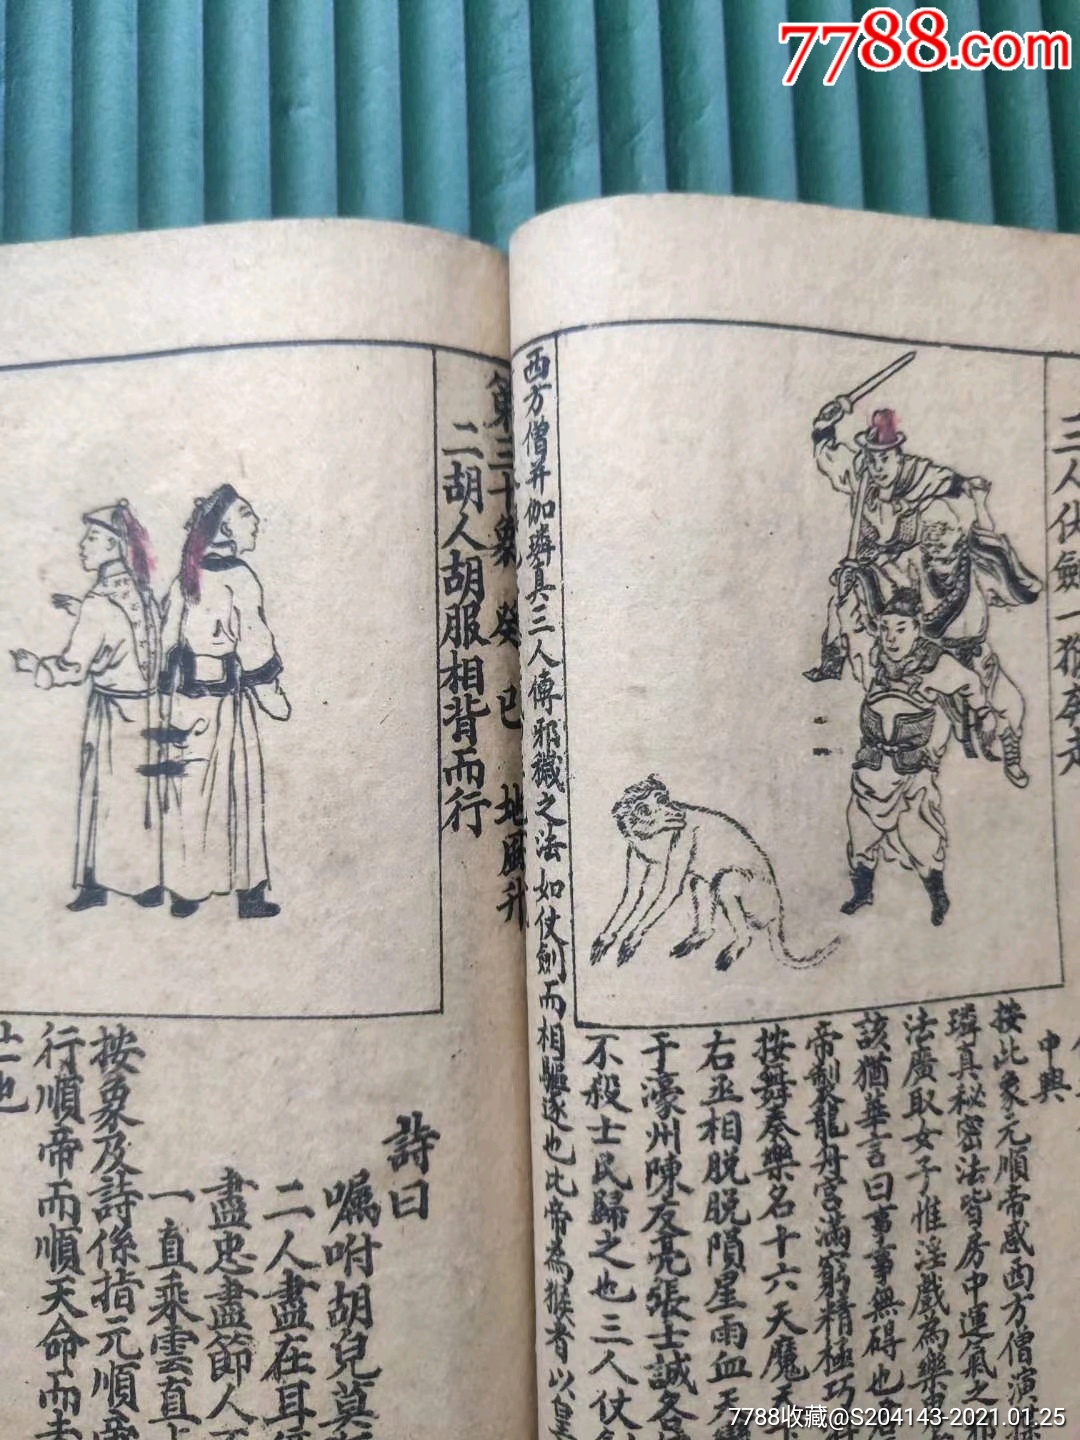 7788.com
三人仗劍一猴奔走
中興
按此象元順帝感西方僧演揲
璘真秘密法皆房中運氣之
法廣取女子惟淫戲為樂
該猶華言曰事事無碍也
帝製龍舟宮滿窮精極巧
按舞奏樂名十六天魔
右丞相脫脫隕星雨血天變
于濠州陳友亮張士誠各
不殺士民歸之也三人仗劍
西方僧并伽璘真三人傳邪穢之法如仗劍而相驅逐也比帝為猴者以
第三十象癸巳地風升
二胡人胡服相背而行
詩曰
囑咐胡兒莫
二人盡在耳
盡忠盡節人
一直乘雲直上
按象及詩係指元順帝
行順帝而順天命而
也
7788收藏@S204143-2021.01.25